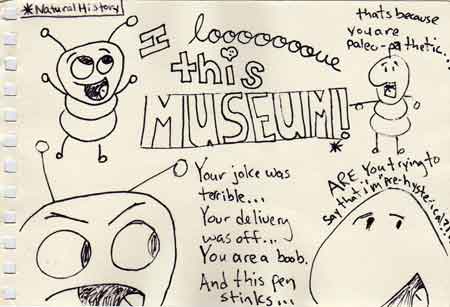 *Natural History
I looooooove
this
MUSEUM!
*
thats because
you are
paleo-pathetic...
Your joke was
terrible...
Your delivery
was off...
You are a boob.
And this pen
stinks...
ARE You trying to
say that i'm pre-hysterical?!?